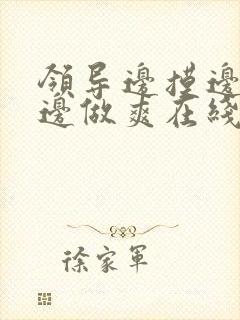 领导边摸边
边做爽在线
徐家军